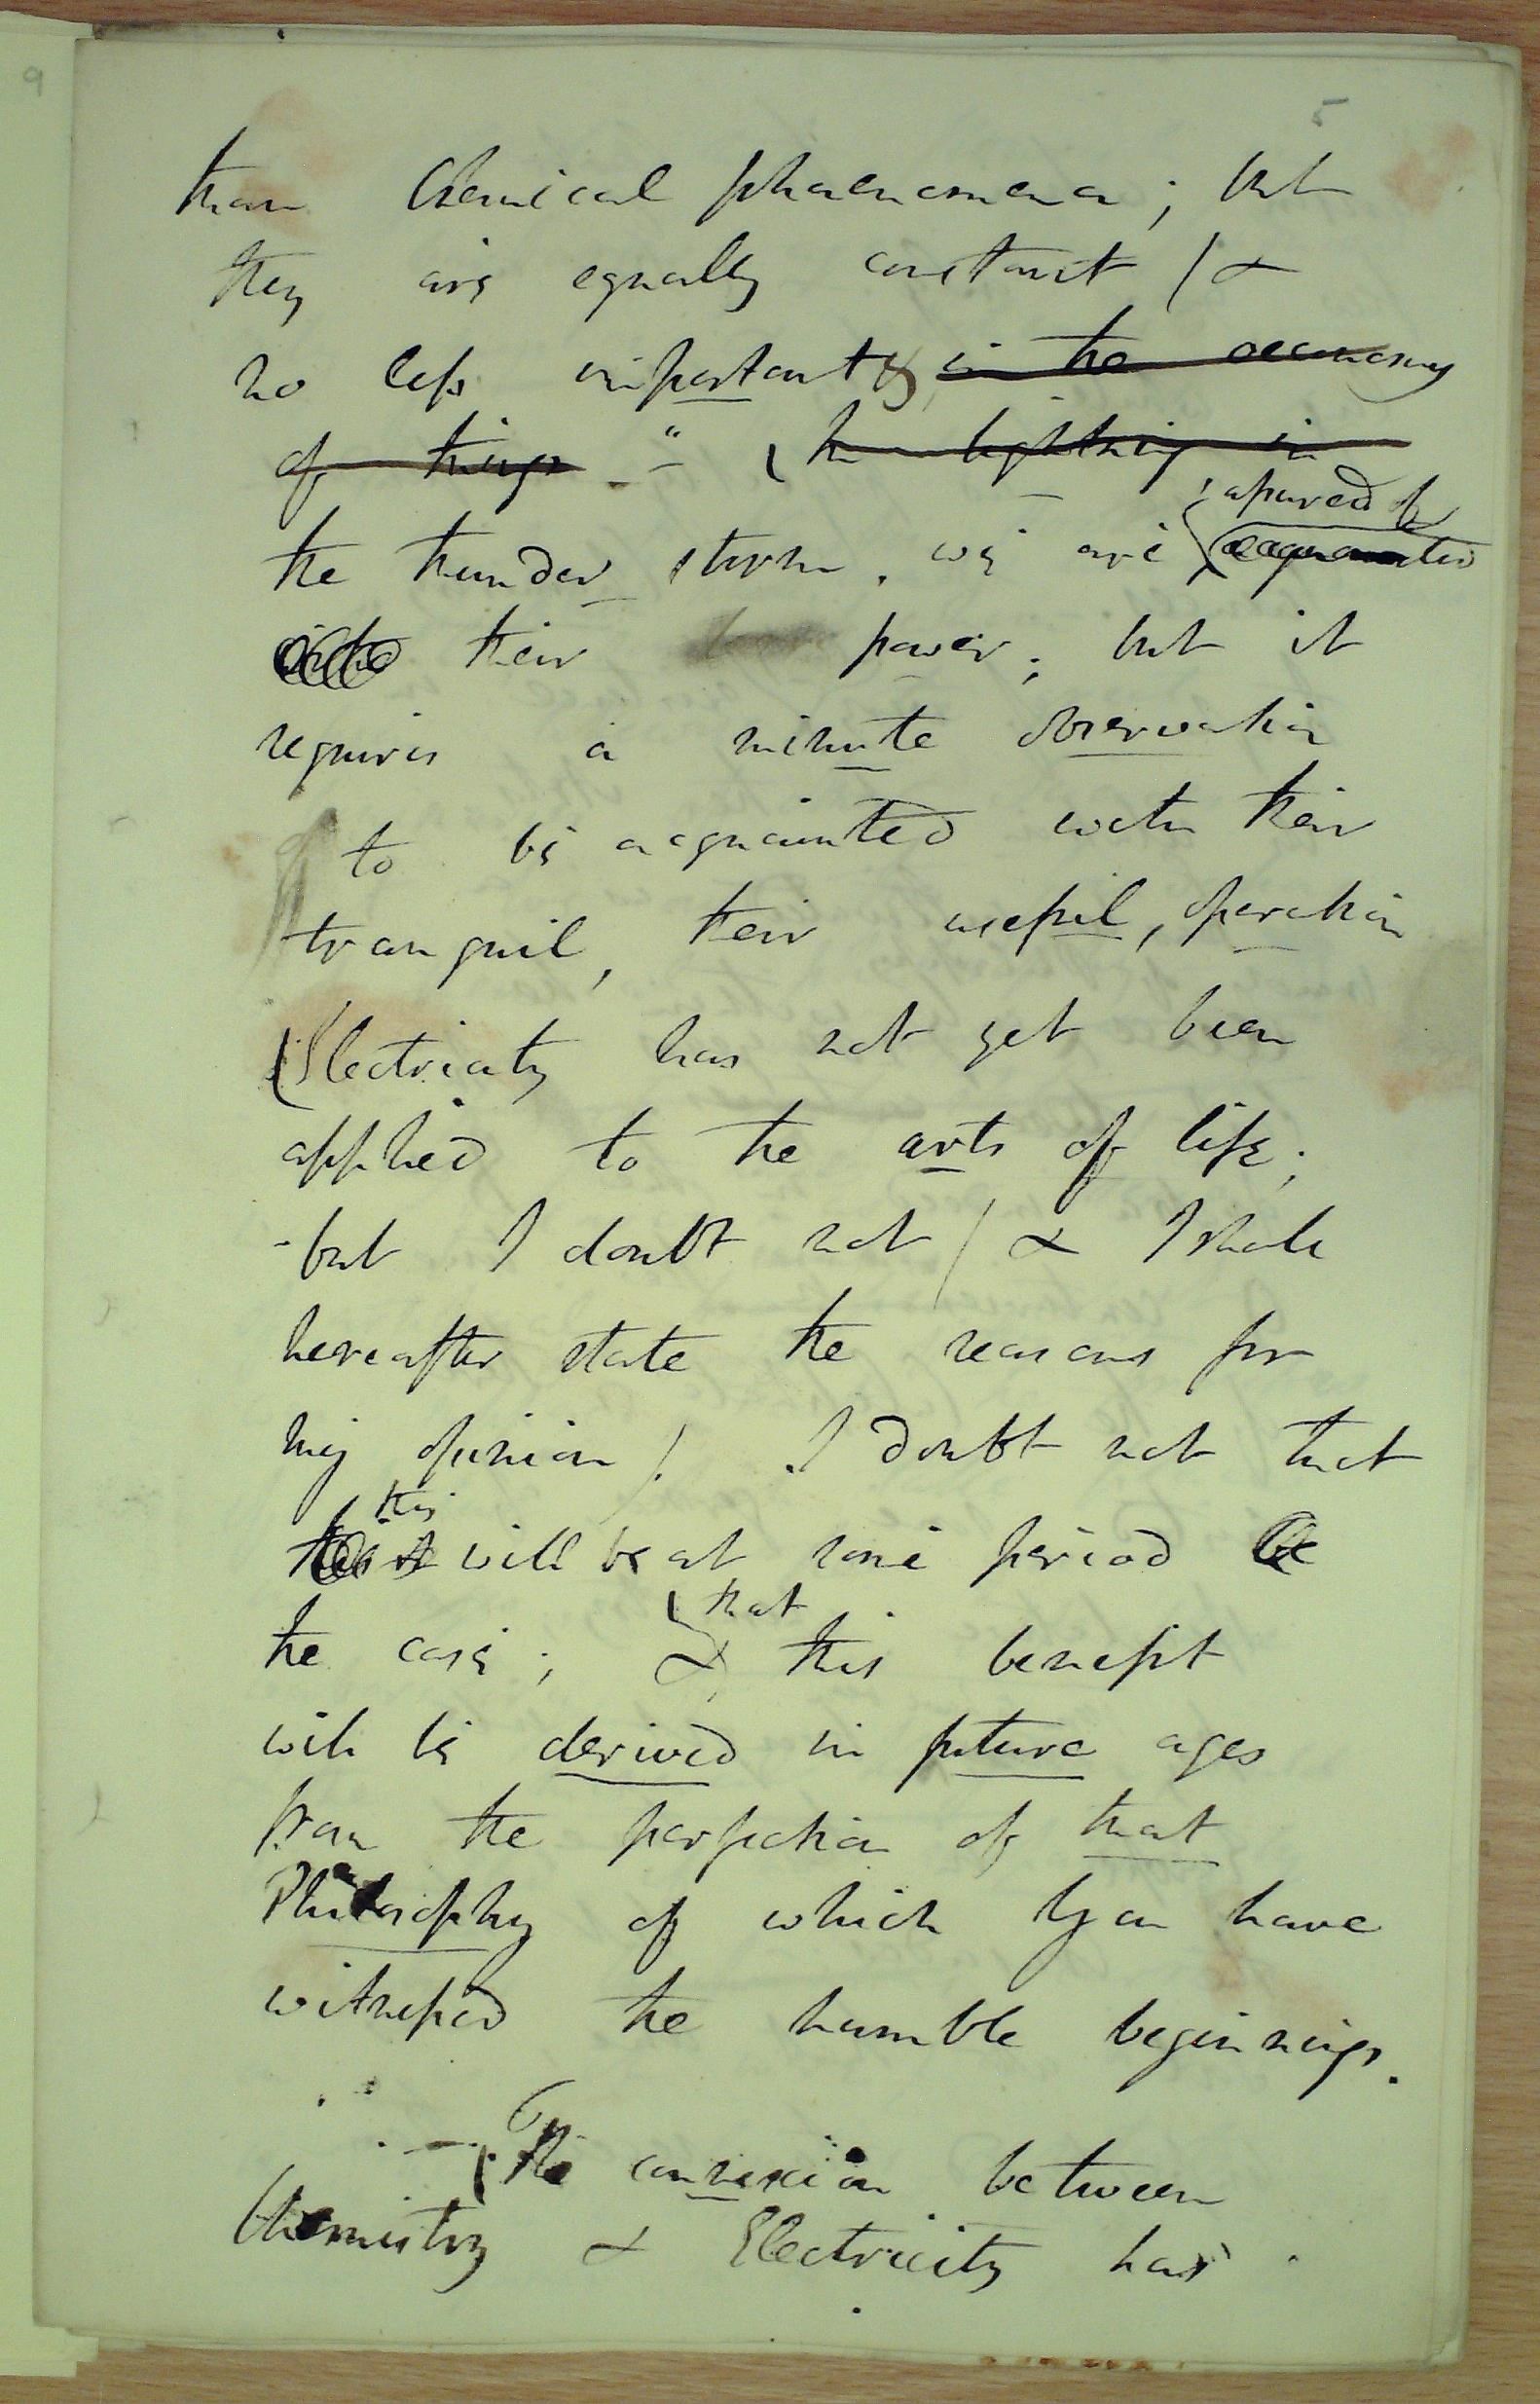 9
5
than Chemical phaenomena; but
they are equally constant / &
no less important, in the oeconomy
of things - " the lightning in
assured of
the thunder storm. we are acquainted
with their power; but it
requires a minute observation
to be acquainted with their
tranquil, their useful, operation
Electricity has not yet been
applied to the arts of life;
- but I doubt not / & I shall
hereafter state the reasons for
my opinion /. I doubt not that
this
will be at some period be
that
the case; & this benefit
will be derived in future ages
from the perfection of that
Philosophy of which you have
witnessed the humble beginnings.
- The connexion between
Chemistry & Electricity has